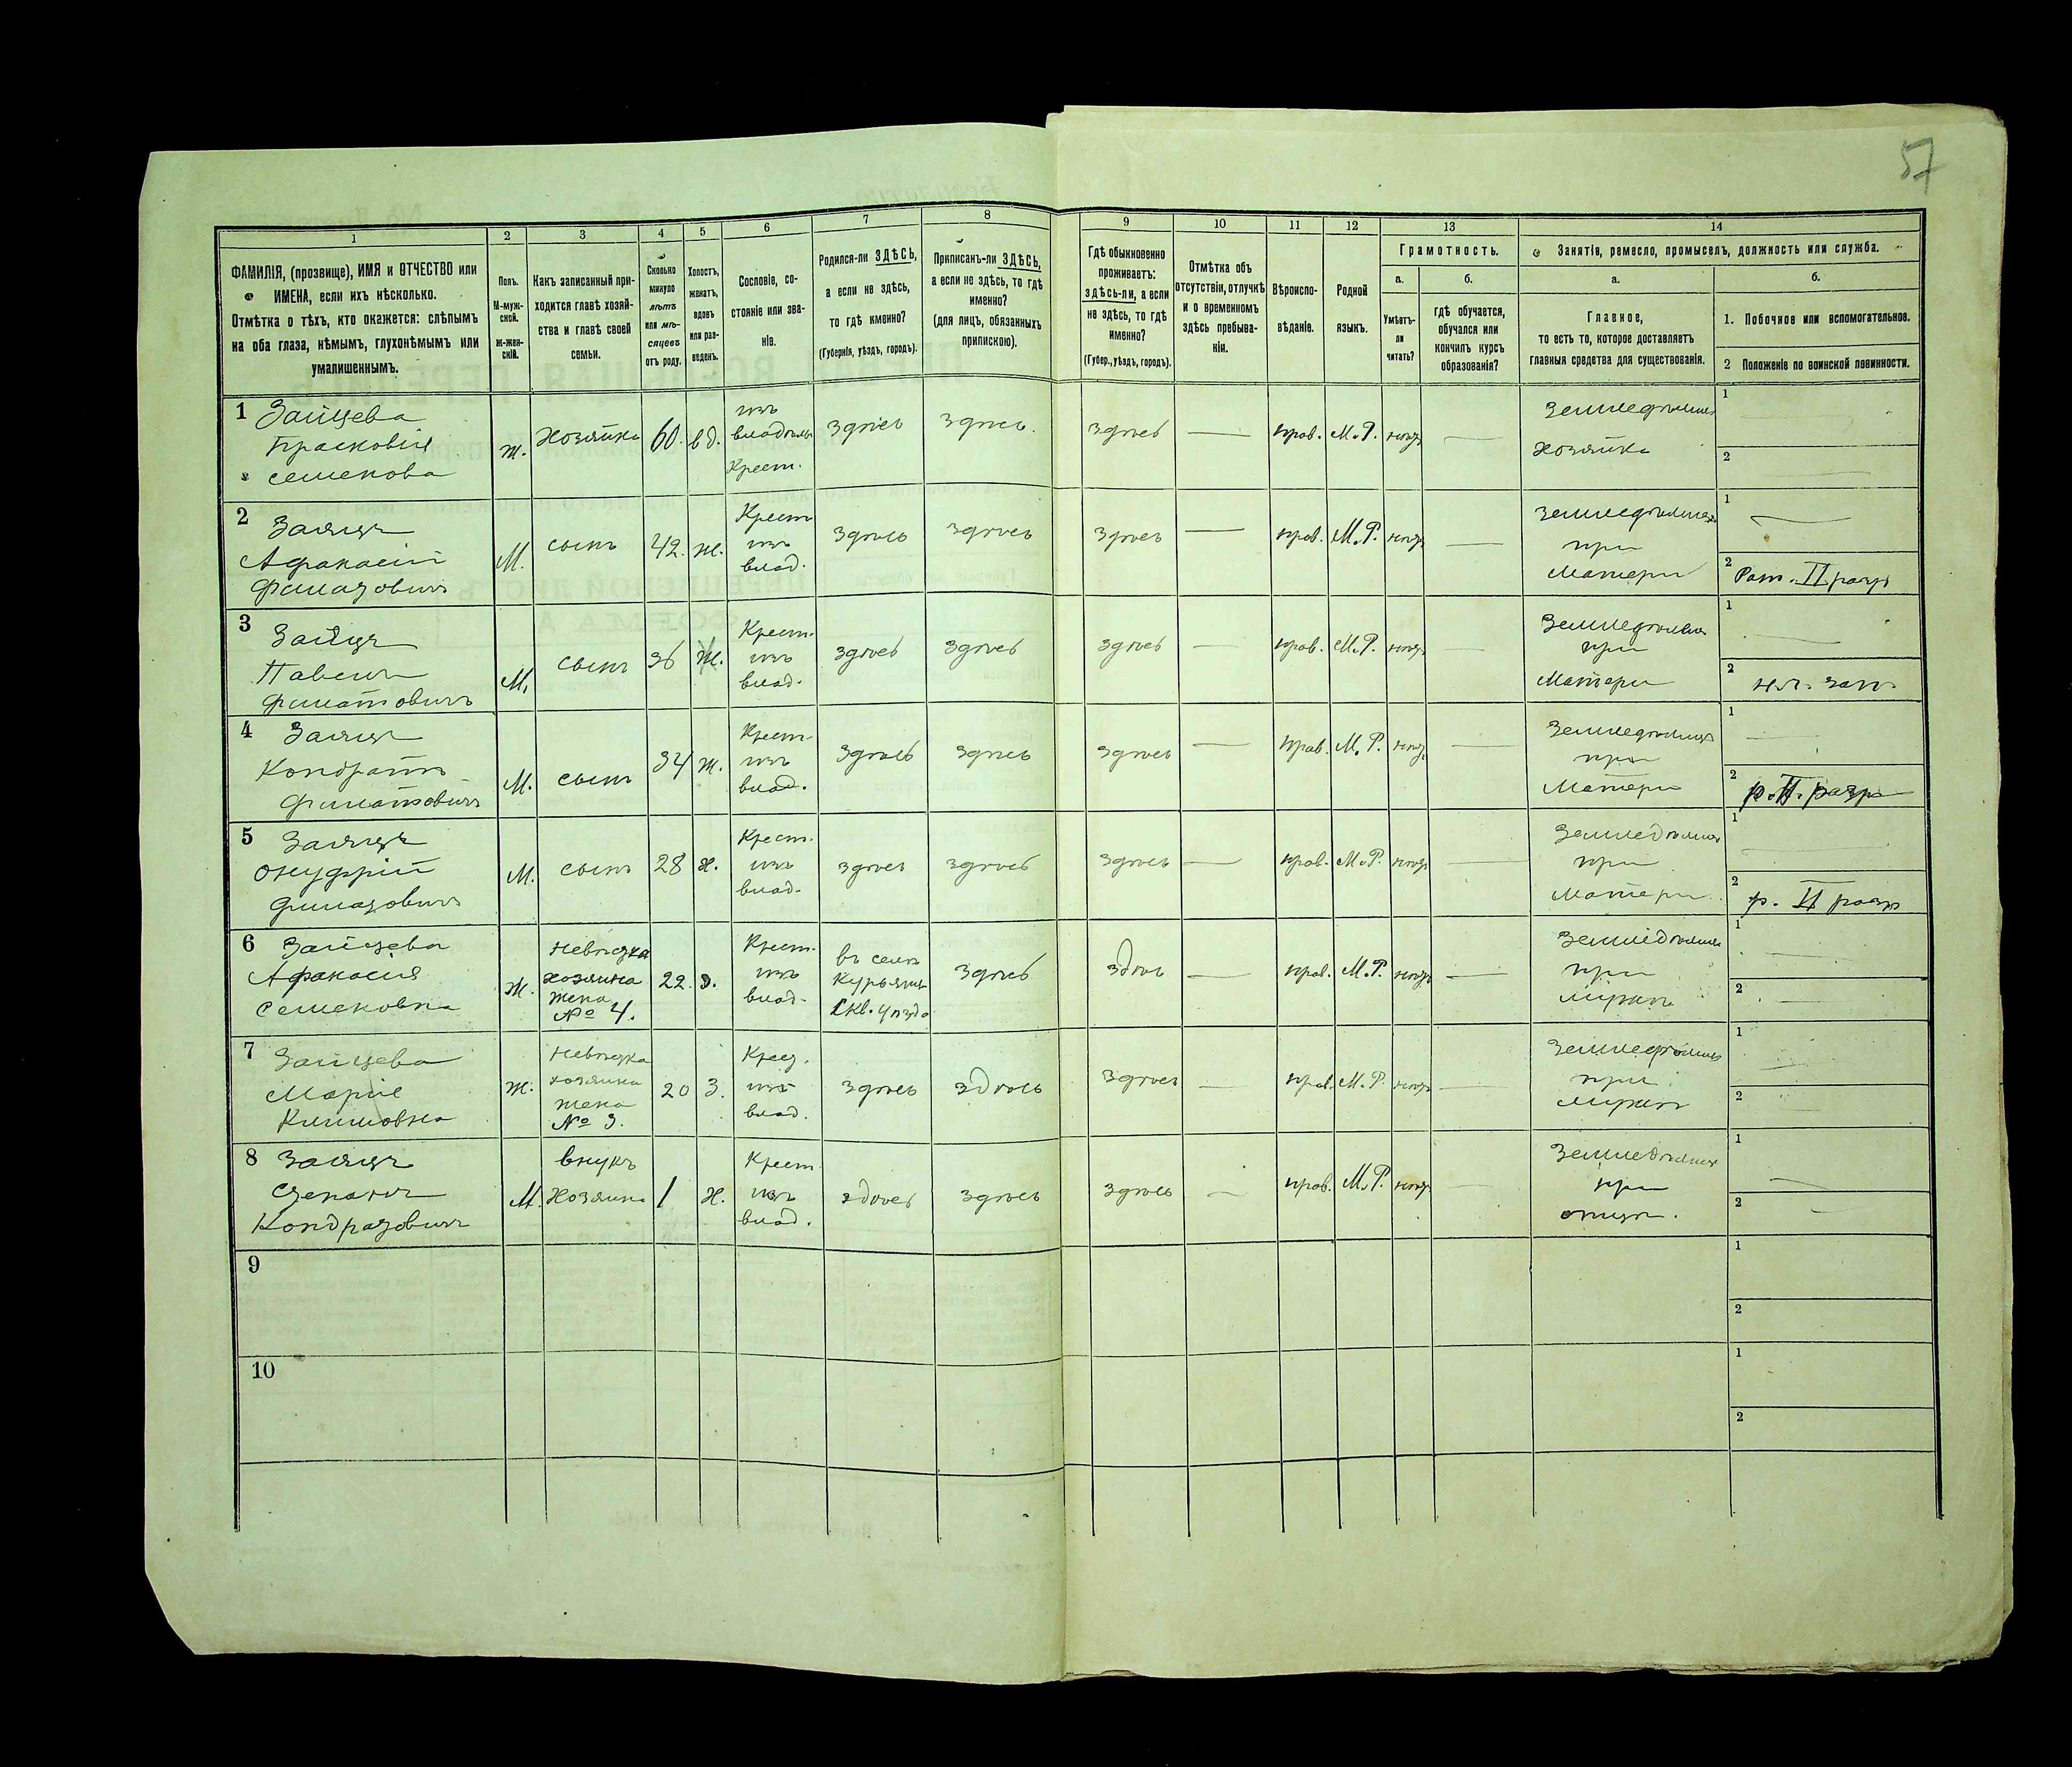 57
1
2
3
4
5
6
7
8
9
10
11
12
13
14
ФАМИЛІЯ, (прозвище), ИМЯ и ОТЧЕСТВО или
ИМЕНА, если ихъ нѣсколько.
Отмѣтка о тѣхъ, кто окажется: слѣпымъ
на оба глаза, нѣмымъ, глухонѣмымъ или
умалишеннымъ.
Полъ.
М-муж-
ской.
Ж-жен-
скій.
Какъ записанный при-
ходится главѣ хозяй-
ства и главѣ своей
семьи.
Сколько
минуло
лѣтъ
или мѣ-
сяцевъ
отъ роду.
Холостъ,
женатъ,
вдовъ
или раз-
веденъ.
Сословіе, со-
стояніе или зва-
ніе.
Родился-ли ЗДѢСЬ,
а если не здѣсь,
то гдѣ именно?
(Губернія, уѣздъ, городъ).
Приписанъ-ли ЗДѢСЬ,
а если не здѣсь, то гдѣ
именно?
(для лицъ, обязанныхъ
припискою).
Гдѣ обыкновенно
проживаетъ:
здѣсь-ли, а если
не здѣсь, то гдѣ
именно?
(Губер., уѣздъ, городъ).
Отмѣтка объ
отсутствіи, отлучкѣ
и о временномъ
здѣсь пребыва-
ніи.
Вѣроиспо-
вѣданіе.
Родной
языкъ.
Грамотность.
а.
Умѣетъ-
ли
читать?
б.
гдѣ обучается,
обучался или
кончилъ курсъ
образованія?
Занятія, ремесло, промыселъ, должность или служба.
а.
Главное,
то есть то, которое доставляетъ
главныя средства для существованія.
б.
1. Побочное или вспомогательное.
2 Положеніе по воинской повинности.
1 Зайцева
Прасковія
Семенова
ж.
хозяйка
60.
вд.
изъ
владѣль
Крест.
здѣсь
здѣсь.
здѣсь
—
прав.
М.Р.
нѣтъ
—
Земледѣлица
хозяйка
1
2
2 Заяцъ
Афанасій
Филатовичъ
М.
сынъ
42.
ж.
Крест
изъ
влад.
здѣсь
здѣсь
здѣсь
—
прав.
М.Р.
нѣтъ
—
Земледѣлецъ
при
Матери
1
2 Рат. II разр
3 Зайцъ
Павелъ
Филатовичъ
М.
сынъ
36
ж.
Крест.
изъ
влад.
здѣсь
здѣсь
здѣсь
—
прав.
М.Р.
нѣтъ
—
Земледѣлец
при
Матери
1
2 н.ч. зап.
4 Заяцъ
Кондратъ
Филатовичъ
М.
сынъ
34
ж.
Крест.
изъ
влад.
здѣсь
здѣсь
здѣсь
—
прав.
М.Р.
нѣтъ
—
Земледѣлецъ
при
Матери
1
2 р. II. разр
5 Заяцъ
Онуфрій
Филатовичъ
М.
сынъ
28
х.
Крест.
изъ
влад.
здѣсь
здѣсь
здѣсь
—
прав.
М.Р.
нѣтъ
—
Земледѣлец
при
Матери
1
2 р. II разр
6 Зайцева
Афанасія
Семеновна
Ж.
Невѣстка
хозяйка
жена
№ 4.
22.
з.
Крест.
изъ
влад.
въ селѣ
Скв. уѣзда
здѣсь
здѣсь
—
прав.
М.Р.
нѣтъ
—
Земледѣлица
при
мужѣ
1
2
7 Зайцева
Марія
Климовна
Ж.
Невѣстка
хозяйка
жена
№ 3.
20
З.
Крест.
изъ
влад.
здѣсь
здѣсь
здѣсь
—
прав.
М.Р.
нѣтъ
—
Земледѣлица
при
мужѣ
1
2
8 Заяцъ
Степанъ
Кондратовичъ
М.
внукъ
Хозяйка
1
Х.
Крест.
изъ
влад.
здѣсь
здѣсь
здѣсь
—
прав.
М.Р.
нѣтъ
—
Земледѣлец
при
отцѣ.
1
2
9
1
2
10
1
2